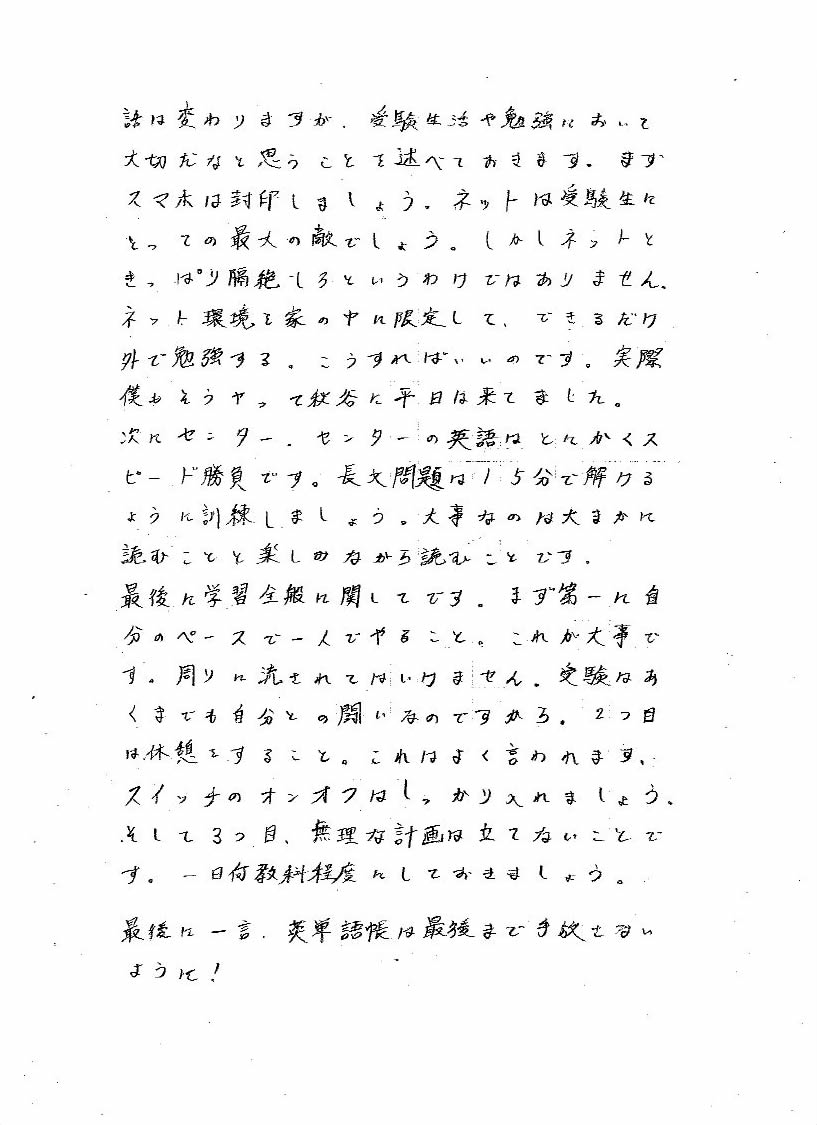 話は変わりますが、受験生活や勉強において
大切だなと思うことを述べておきます。まず
スマホは封印しましょう。ネットは受験生に
とっての最大の敵でしょう。しかしネットと
きっぱり隔絶しろというわけではありません。
ネット環境を家の中に限定して、できるだけ
外で勉強する。こうすればいいのです。実際
僕もそうやって秋谷に平日は来てました。
次にセンター。センターの英語はとにかくス
ピード勝負です。長文問題は15分で解ける
ように訓練しましょう。大事なのは大まかに
読むことと楽しみながら読むことです。
最後に学習全般に関してです。まず第一に自
分のペースで一人でやること。これが大事で
す。周りに流されてはいけません。受験はあ
くまでも自分との闘いなのですから。2つ目
は休憩をすること。これはよく言われます、
スイッチのオンオフはしっかり入れましょう。
そして3つ目、無理な計画は立てないことで
す。一日何教科程度にしておきましょう。
最後に一言、英単語帳は最後まで手放さない
ように!